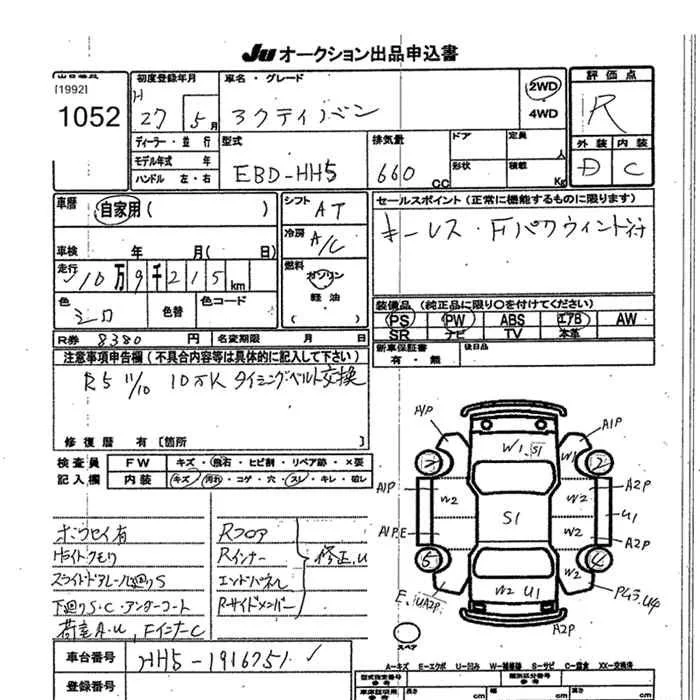 Ju オークション出品申込書
出品番号
[1992]
1052
初度登録年月
H 27 5月
ディーラー・並行
モデル年式 年
ハンドル 左・右
車名・グレード
アクティバン
2WD
4WD
評価点
R
外装 内装
D C
型式
EBD-HH5
排気量
660 CC
ドア
形状
定員
人
積載
Kg
車歴
自家用( )
車検 年 月( 日)
走行
10万9千215km
色
シロ
色替
色コード
シフト
AT
冷房
A/C
燃料
ガソリン
軽油
セールスポイント(正常に機能するものに限ります)
キーレス・Fパワウィンド付
装備品(純正品に限り○を付けてください)
PS PW ABS エアB AW
SR ナビ TV 本革
新車保証書
有・無
後日品
R券 8380円
名変期限 月 日
注意事項申告欄(不具合内容等は具体的に記入して下さい)
R5 11/10 10万K タイミングベルト交換
修復歴 有〔箇所 〕
検査員
記入欄
FW キズ・飛石・ヒビ割・リペア跡・×要
内装 キズ・汚れ・コゲ・穴・スレ・キレ・破レ
ホウセイ有
Hライトクモリ
スライドドアレール廻りS
下廻りS・C・アンダーコート
荷室A・U、FインナーC
Rフロア
Rインナー
エンドパネル
Rサイドメンバー
修正、U
A1P
A1P
W1、S1
W1
2
2
A1P
W2
W2
A2P
U1
S1
A1P.E
W2
A2P
5
4
W2
W2 U1
E、UA2P
A2P
スペア
A-キズ E-エクボ U-凹み W-補修跡 S-サビ C-腐食 XX-交換済
車台番号
HH5-1916751
登録番号
型式指定番号
参考
類別区分番号
参考
車庫証明用
長さ
cm
幅
cm
高さ
cm